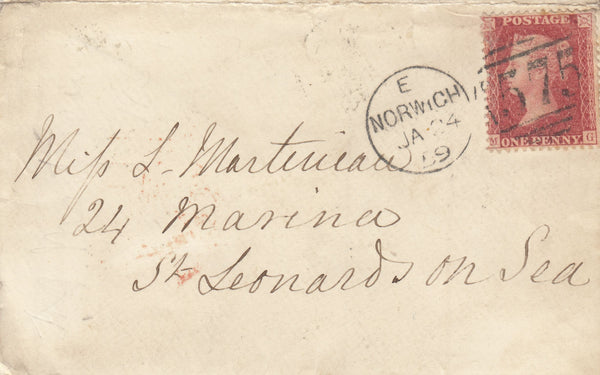 POSTAGE
575
M G
ONE PENNY
E
NORWICH
JA 24
69
Miss L. Martineau
24 Marina
St Leonards on Sea